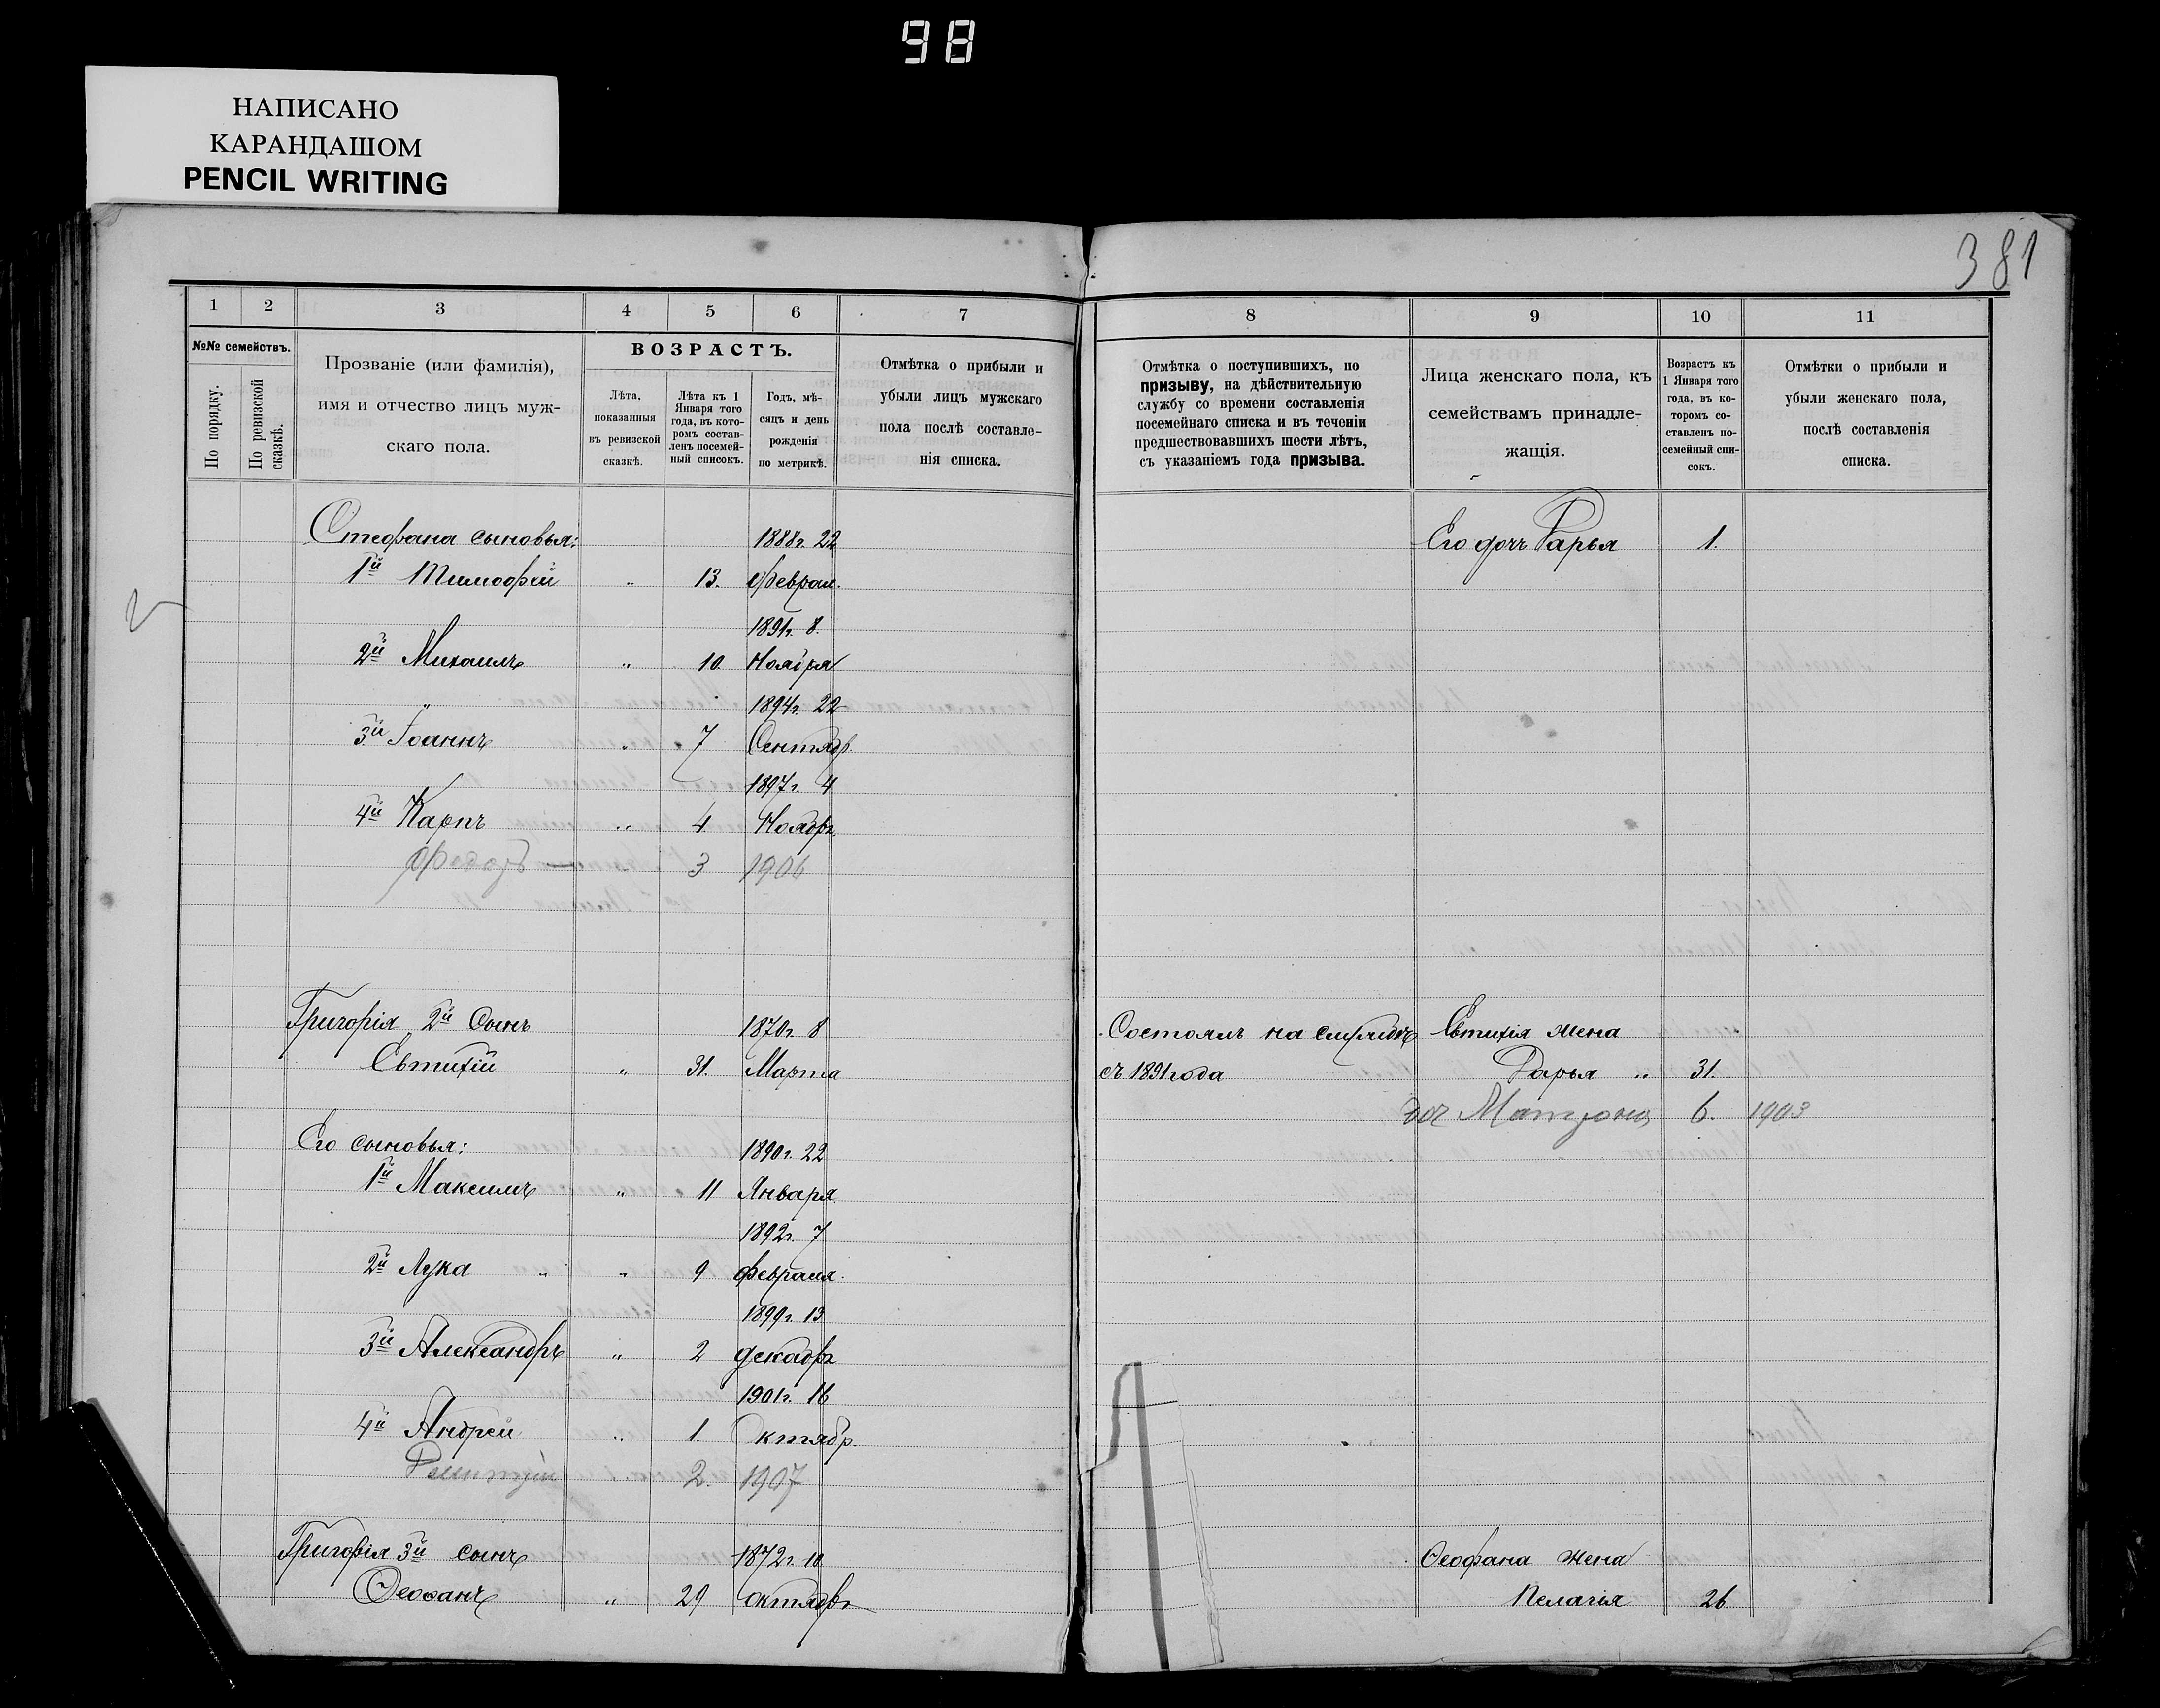 98
НАПИСАНО
КАРАНДАШОМ
PENCIL WRITING
381
1 2 3 4 5 6 7
№№ семействъ.
По порядку.
По ревизской сказкѣ.
Прозваніе (или фамилія),
имя и отчество лицъ муж-
скаго пола.
ВОЗРАСТЪ.
Лѣта,
показанныя
въ ревизской
сказкѣ.
Лѣта къ 1
Января того
года, въ кото-
ромъ состав-
ленъ посемей-
ный списокъ.
Годъ, мѣ-
сяцъ и день
рожденія
по метрикѣ.
Отмѣтка о прибыли и
убыли лицъ мужскаго
пола послѣ составле-
нія списка.
Стефана сыновья: 1888г. 22
1й Тимофей " 13. Феврал.
1891г. 8.
2й Михаилъ " 10. Ноября
1894г. 22
3й Іоаннъ " 7 Сентябр.
1897г. 4
4й Карпъ " 4 Ноябрь
Федоръ — 3 1906
Григорія 2й Сынъ 1870г. 8
Евтихій " 31. Марта
Его сыновья: 1890г. 22
1й Максимъ " 11 Января
1892г. 7
2й Лука " " 9 февраля.
1899г. 13
3й Александръ " 2 декабрь
1901г. 16
4й Андрей " 1. Октябр.
2. 1907
Григорія 3й сынъ 1872г. 10
Феофанъ " 29 октябрь
8 9 10 11
Отмѣтка о поступившихъ, по
призыву, на дѣйствительную
службу со времени составленія
посемейнаго списка и въ теченіи
предшествовавшихъ шести лѣтъ,
съ указаніемъ года призыва.
Лица женскаго пола, къ
семействамъ принадле-
жащія.
Возрастъ къ
1 Января того
года, въ ко-
торомъ со-
ставленъ по-
семейный спи-
сокъ.
Отмѣтки о прибыли и
убыли женскаго пола,
послѣ составленія
списка.
Его дочь Дарья 1.
Состоялъ на службѣ Евтихія жена
съ 1891 года Дарья " 31.
доч Матрона 6. 1903
Феофана жена
Пелагія 26.